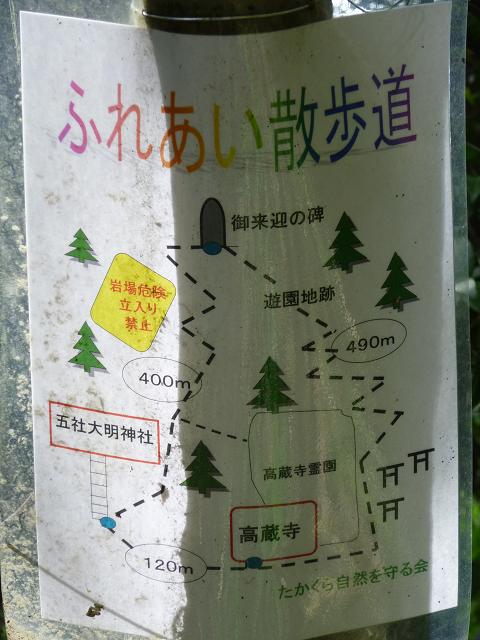 ふれあい散歩道
御来迎の碑
遊園地跡
岩場危険
立入り
禁止
490m
400m
五社大明神社
高蔵寺霊園
高蔵寺
120m
たかくら自然を守る会